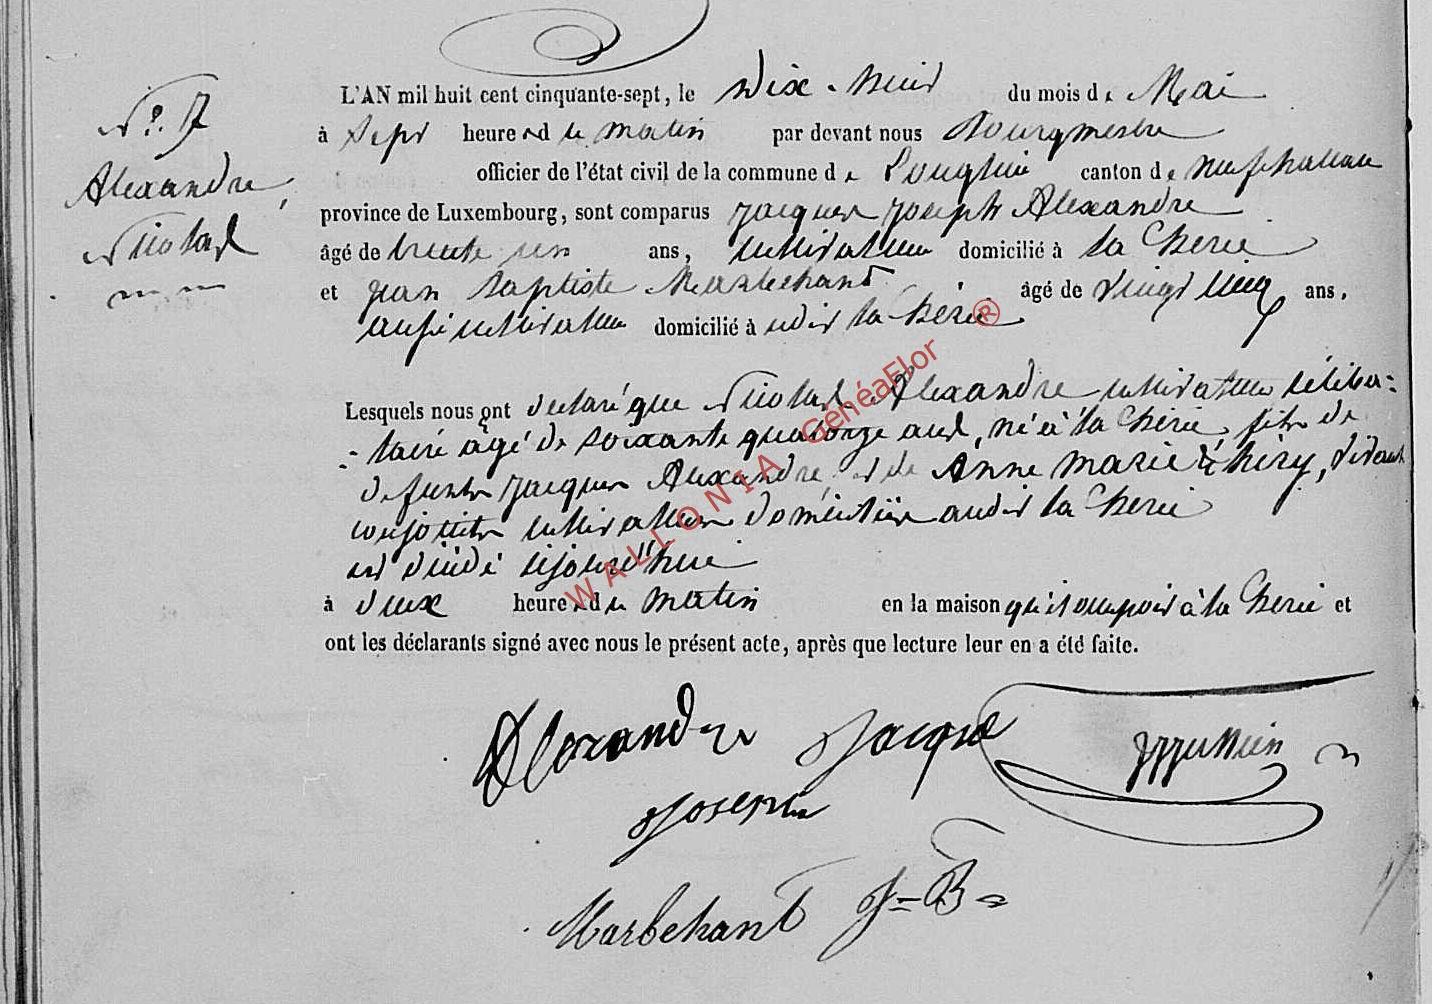 N.° 7
Alexandre,
Nicolas
L'AN mil huit cent cinquante-sept, le Dix-neuf du mois de Mai
à Sept heures du matin par devant nous Bourgmestre
officier de l'état civil de la commune de Longlier canton de neufchateau
province de Luxembourg, sont comparus Jacques Joseph Alexandre
âgé de trente un ans, cultivateur domicilié à la Herie
et jean Baptiste Marbehant âgé de vingt cinq ans,
aussi cultivateur domicilié à udit la Herie
Lesquels nous ont declaré que Nicolas Alexandre cultivateur céliba=
=taire âgé de soixante quatorze ans, né à la Herie fils de
defunts Jacques Alexandre, et de Anne Marie Thiry, vivant
conjoints cultivateurs domiciliés audit la Herie
est décédé cejourd'hui
à deux heures du matin en la maison qu'il occupoit à la Herie et
ont les déclarants signé avec nous le présent acte, après que lecture leur en a été faite.
Alexandre Jacque
Joseph
Marbehant J=B=
WALLONIA GenéaFlor ®